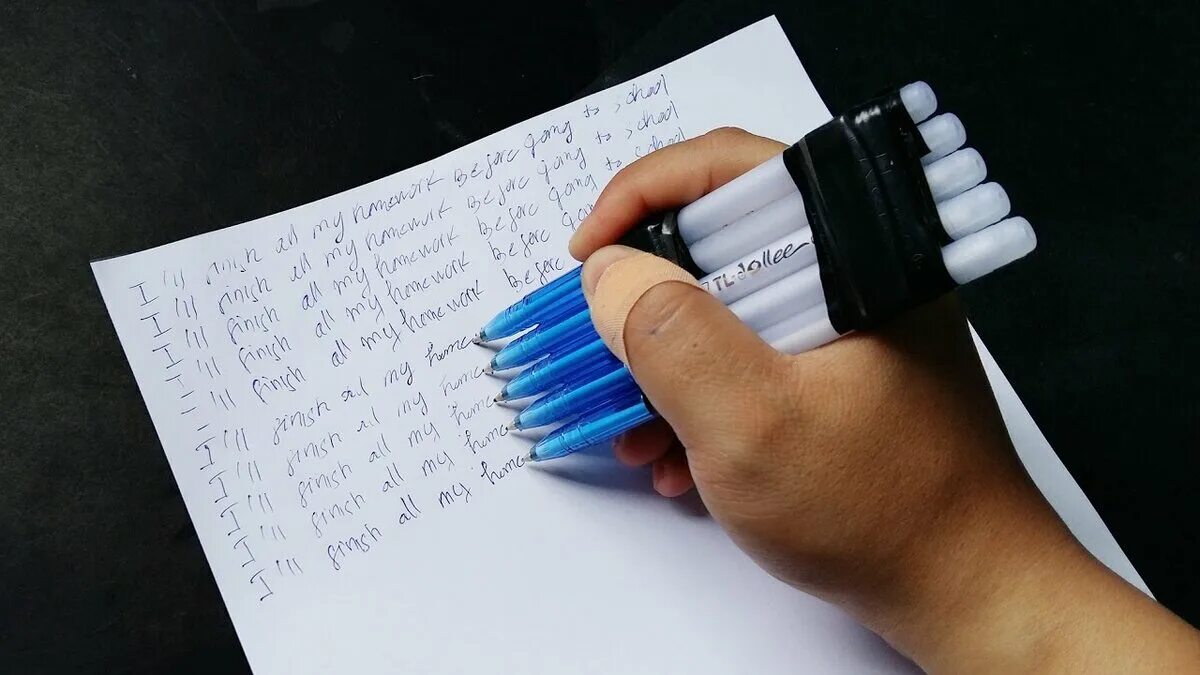 I'll finish all my homework Before going to school
I'll finish all my homework Before going to school
I'll finish all my homework Before going to school
I'll finish all my homework Before goin
I'll finish all my homework Before
I'll finish all my home
I'll finish all my home
I'll finish all my home
I'll finish all my home
I'll finish all my home
TL-dollee